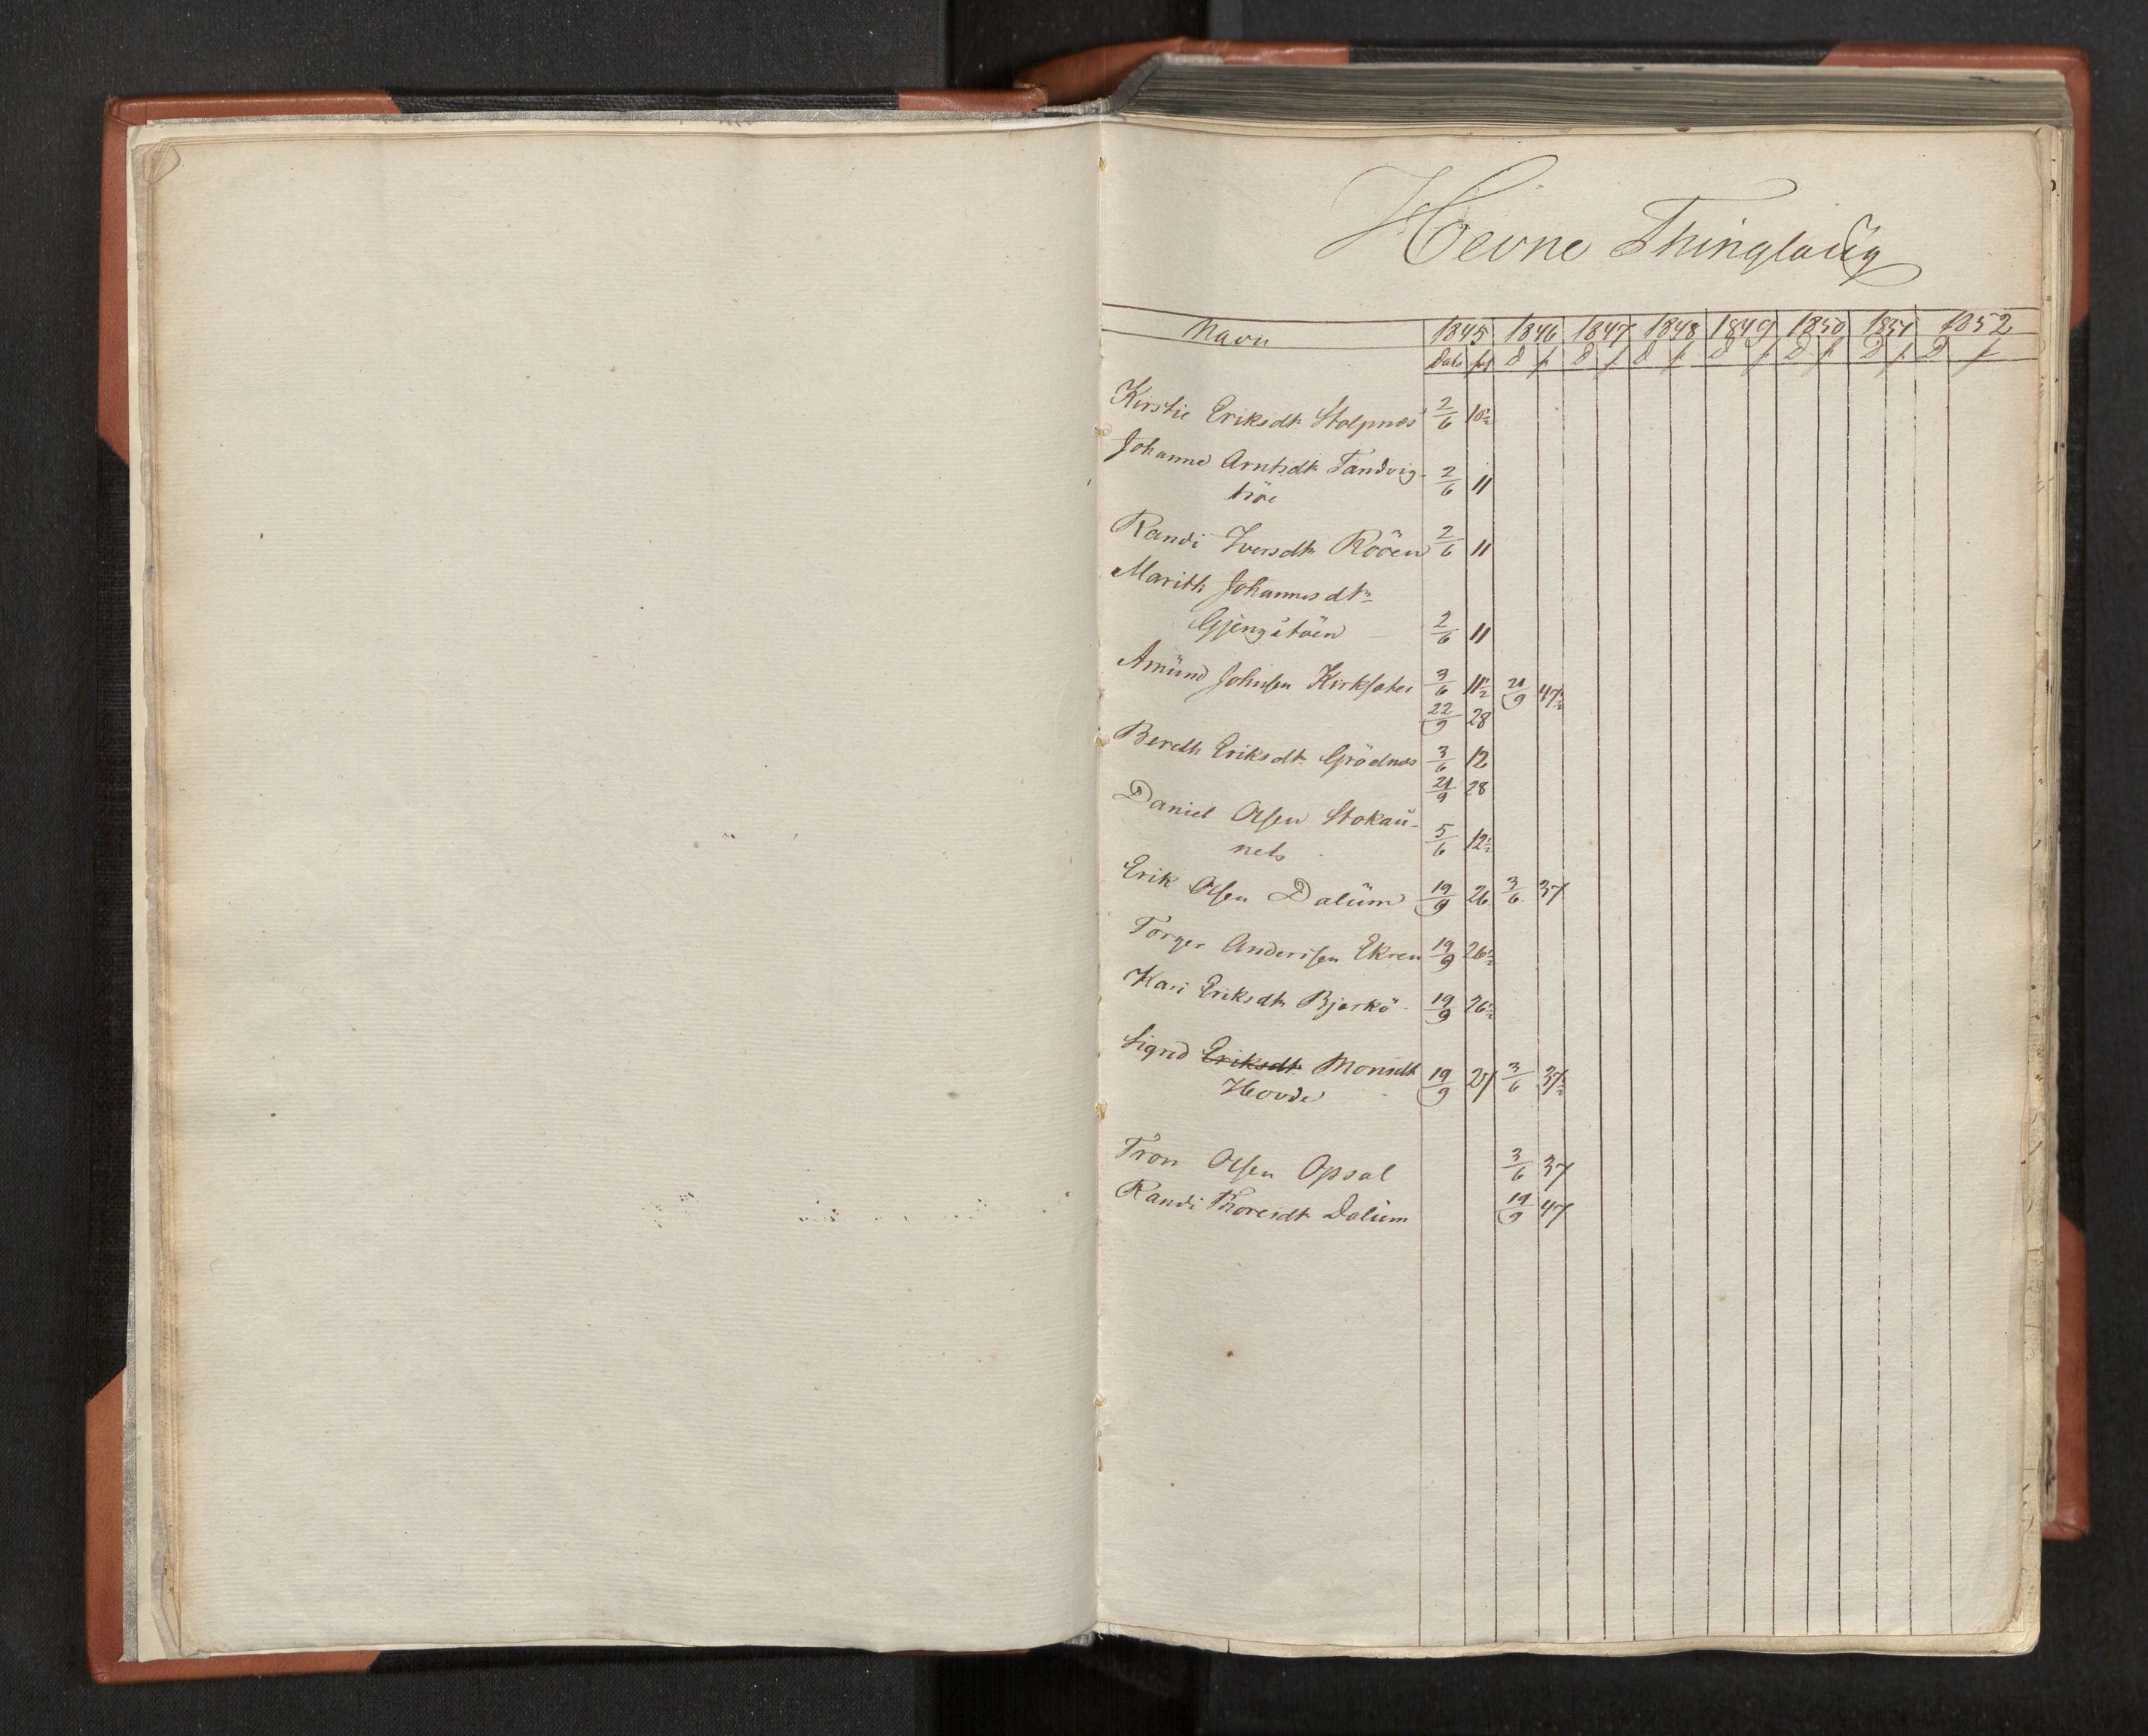 Hevne Thinglaug
Navn 1845 1846 1847 1848 1849 1850 1851 1852
Dato fol D f D f D f D f D f D f D f
Kirstie Eriksdtr Stolpnæs 2/6 10½
Johanne Arntsdtr Tandvig- 2/6 11
höe
Randi Iversdtr Rööen 2/6 11
Marith Johannesdtr
Gjengstöen 2/6 11
Amund Johnsen Kirksæter 3/6 11½ 21/9 47½
22/9 28
Bereth Eriksdtr Grödnæs 3/6 12
21/9 28
Daniel Olsen Stokau- 5/6 12½
nets
Erik Olsen Dalum 19/9 26 3/6 37
Torger Andersen Ekren 19/9 26½
Kari Eriksdtr Bjerkö 19/9 26½
Sigrid Eriksdtr Monsdtr 19/9 27 3/6 37½
Hovde
Tron Olsen Opsal 3/6 37
Randi Thoresdtr Dalum 19/9 47